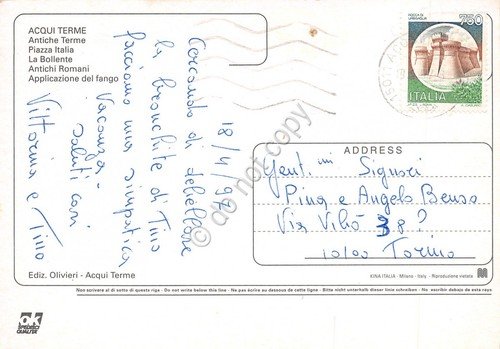 ACQUI TERME
Antiche Terme
Piazza Italia
La Bollente
Antichi Romani
Applicazione del fango
18/4/97
Cercando di debellare
la bronchite di Tino
facciamo una simpatica
vacanza -
Saluti cari
Vittorina e Tino
ROCCA DI
URBISAGLIA
750
ITALIA
ADDRESS
Gent.mi Signori
Pina e Angelo Benso
Via Vibò 38?
10100 Torino
do not copy
Ediz. Olivieri - Acqui Terme
KINA ITALIA - Milano - Italy - Riproduzione vietata
Non scrivere al di sotto di questa riga - Do not write below this line - Ne pas écrire au dessous de cette ligne - Bitte nicht unterhalb dieser linie schreiben - No escribir debajo de esta raya
OK
SPEDIRECI
QUALITÀ